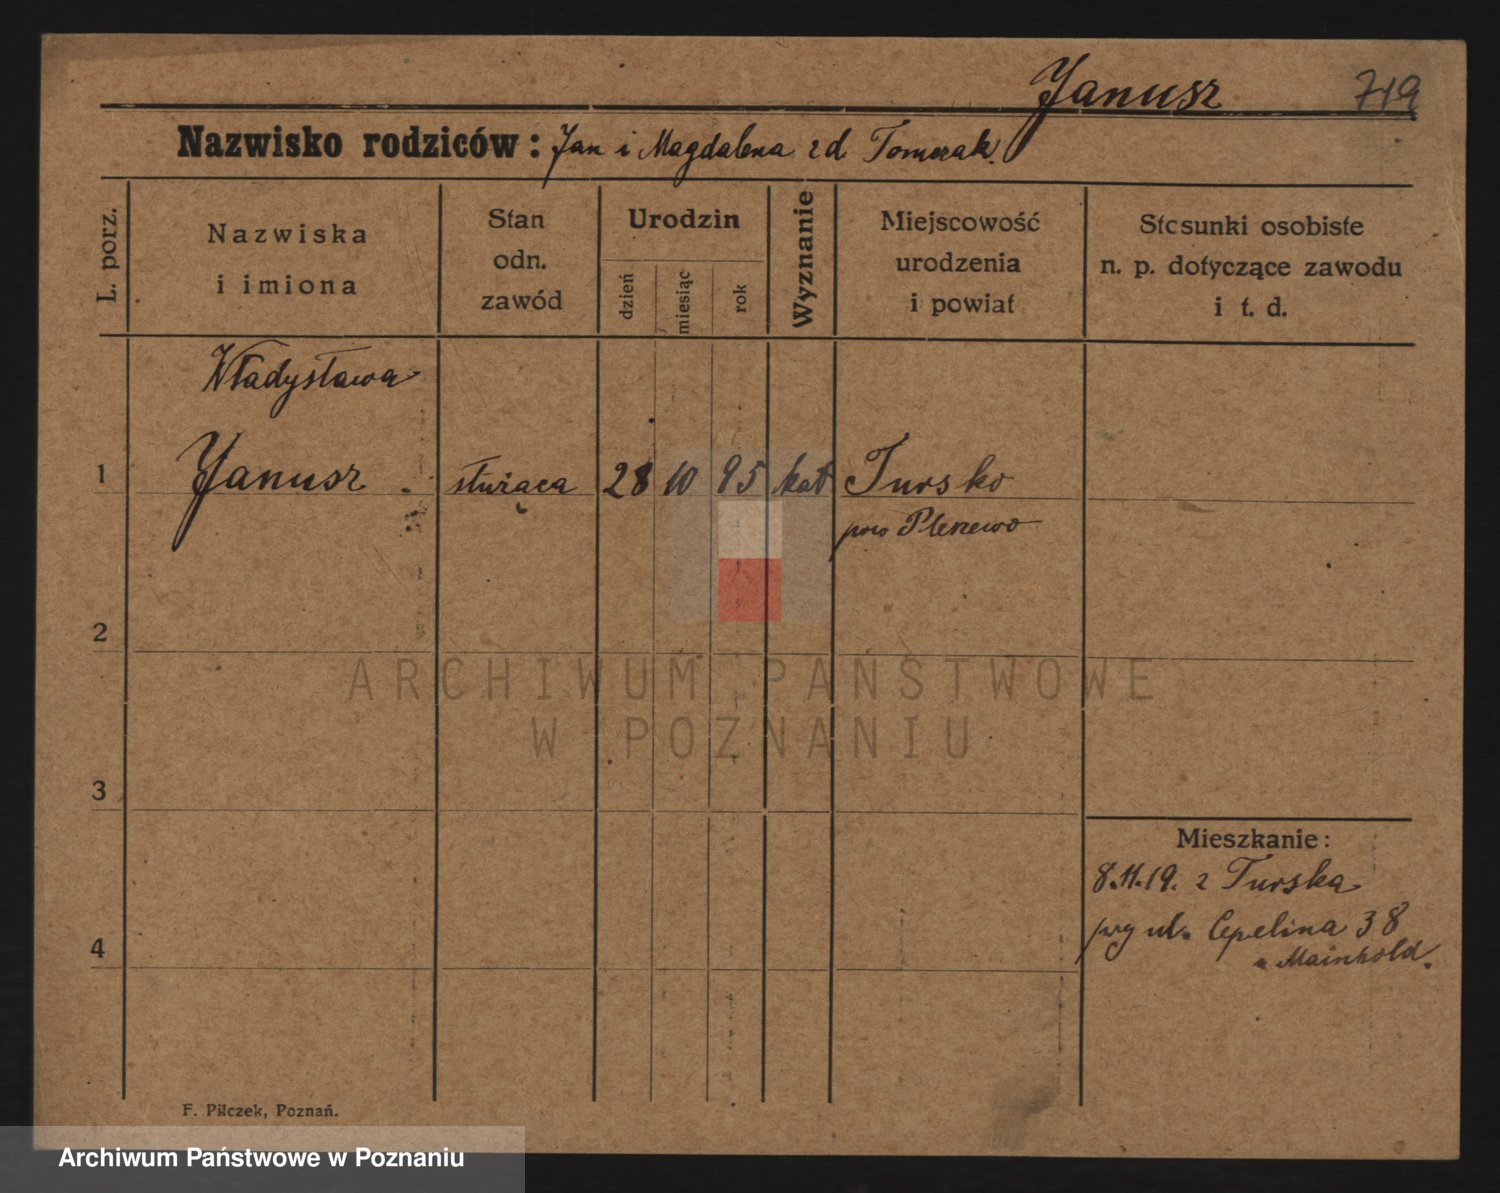 Janusz 719
Nazwisko rodziców: Jan i Magdalena zd Tomczak.
L. porz.
Nazwiska
i imiona
Stan
odn.
zawód
Urodzin
dzień
miesiąc
rok
Wyznanie
Miejscowość
urodzenia
i powiat
Stosunki osobiste
n. p. dotyczące zawodu
i t. d.
Władysława
1 Janusz służąca 28 10 95 kat Tursko
pow Pleszewo
2
ARCHIWUM PAŃSTWOWE
W POZNANIU
3
Mieszkanie:
8.11.19. z Turska
przy ul. Cepelina 38
u Mainhold.
4
F. Pilczek, Poznań.
Archiwum Państwowe w Poznaniu